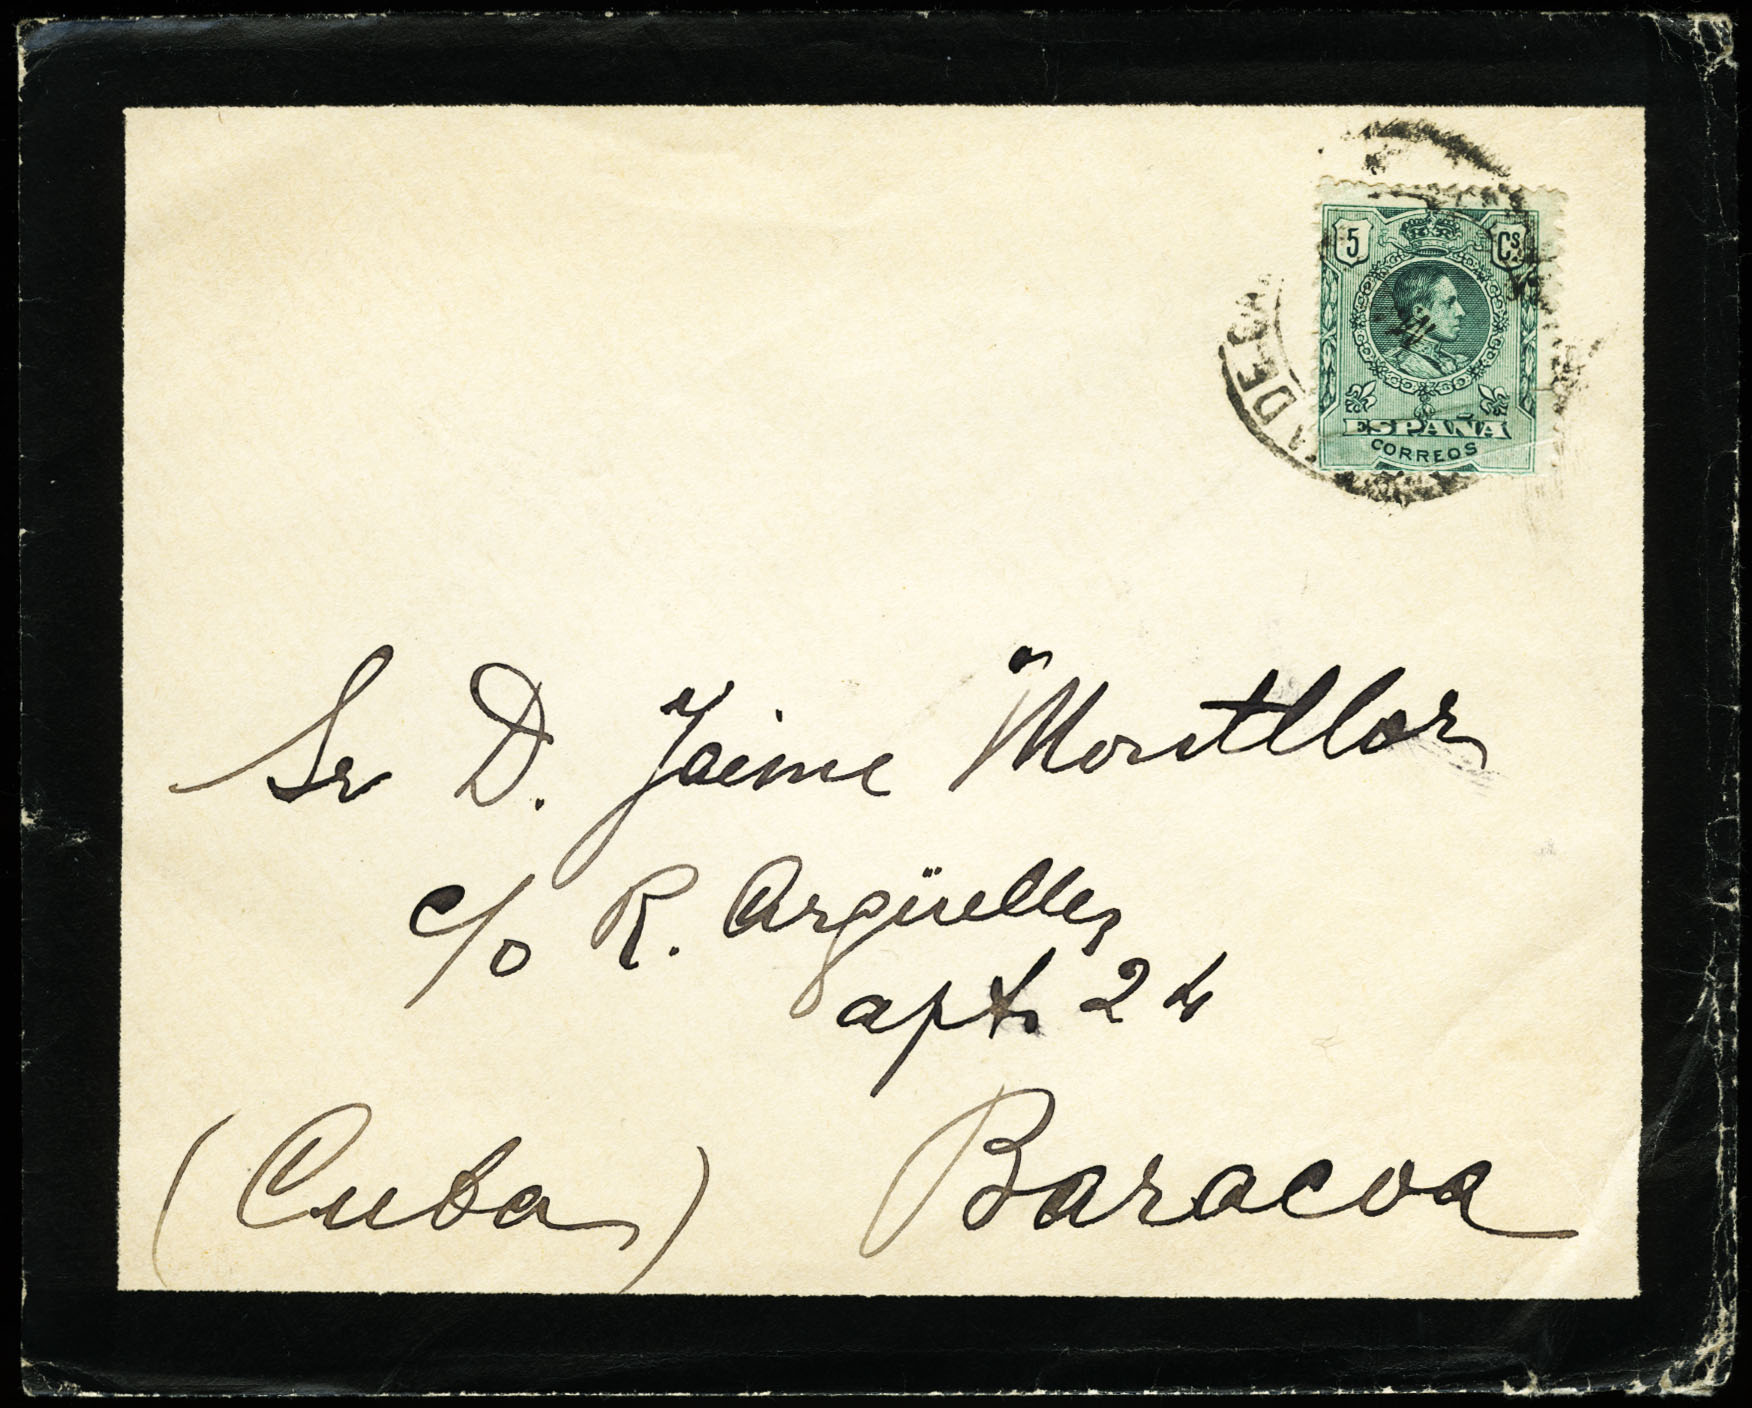 5 Cs
ESPAÑA
CORREOS
DE
Sr D. Jaime Montllor
c/o R. Argüelles
apt. 24
(Cuba) Baracoa